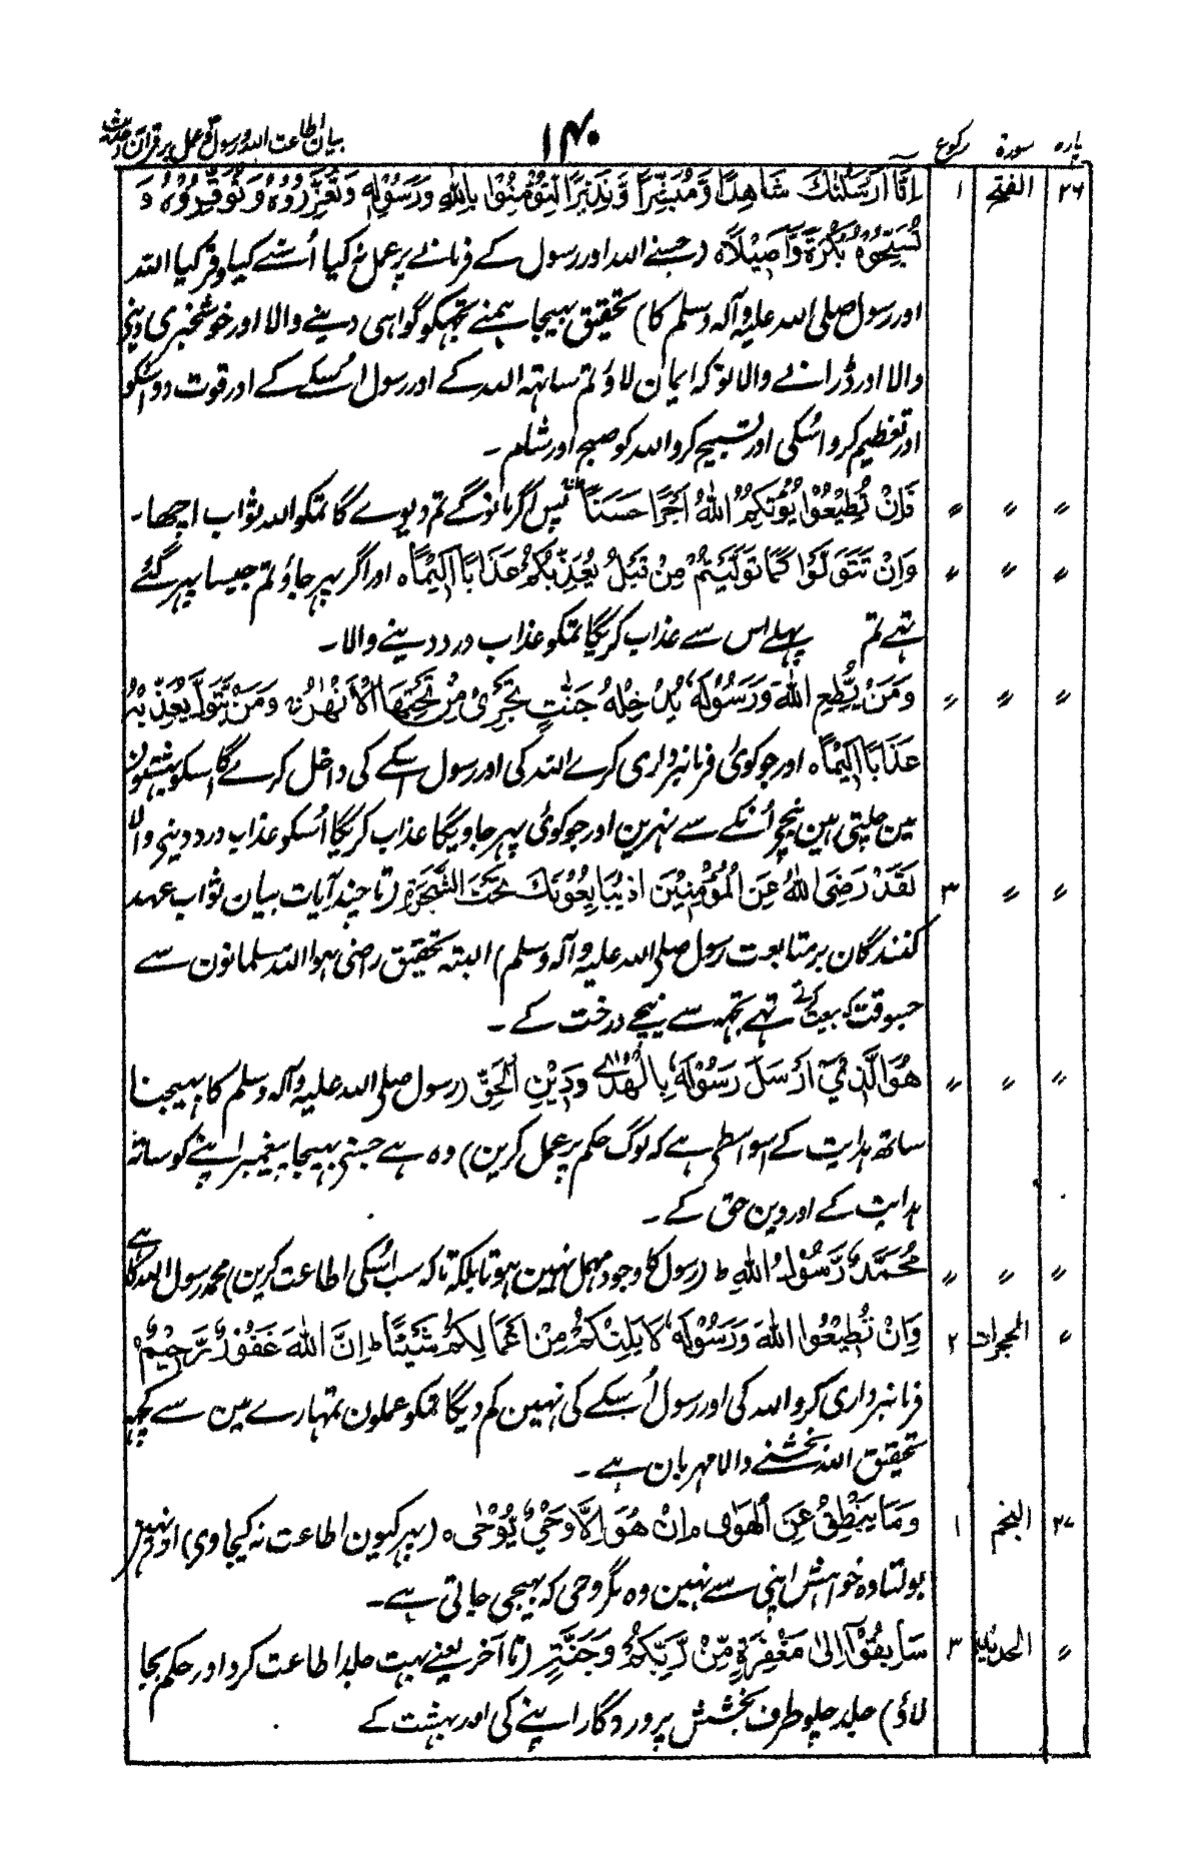 پارہ سورۃ رکوع ۱۴۰ بیان اطاعت اللہ و رسول و عمل بر قرآن و حدیث
۲۶ الفتح ۱ اِنَّا اَرْسَلْنٰكَ شَاهِدًا وَّمُبَشِّرًا وَّنَذِيْرًا لِتُؤْمِنُوْا بِاللّٰهِ وَرَسُوْلِهٖ وَتُعَزِّرُوْهُ وَتُوَقِّرُوْهُ وَ
تُسَبِّحُوْهُ بُكْرَةً وَّاَصِيْلًا ہ (جسنے اللہ اور رسول کے فرمانے پر عمل نہ کیا اُسنے کیا وقر کیا اللہ
اور رسول صلی اللہ علیہ وآلہ وسلم کا) تحقیق بہیجا ہمنے تجہکو گواہی دینے والا اور خوشخبری دینے
والا اور ڈرانے والا تو کہ ایمان لاؤ تم ساتہہ اللہ کے اور رسول اُسکے کے اور قوت دو اُسکو
اور تعظیم کرو اُسکی اور تسبیح کرو اللہ کو صبح اور شام ۔
〃 〃 〃 فَاِنْ تُطِيْعُوْا يُؤْتِكُمُ اللّٰهُ اَجْرًا حَسَنًا پس اگر مانوگے تم دیوے گا تمکو اللہ ثواب اچھا ۔
〃 〃 〃 وَاِنْ تَتَوَلَّوْا كَمَا تَوَلَّيْتُمْ مِنْ قَبْلُ يُعَذِّبْكُمْ عَذَابًا اَلِيْمًا ہ اور اگر پہر جاؤ تم جیسا پہر گئے
تہے تم پہلے اس سے عذاب کریگا تمکو عذاب درد دینے والا ۔
〃 〃 〃 وَمَنْ يُّطِعِ اللّٰهَ وَرَسُوْلَهٗ يُدْخِلْهُ جَنّٰتٍ تَجْرِىْ مِنْ تَحْتِهَا الْاَنْهٰرُ وَمَنْ يَّتَوَلَّ يُعَذِّبْهُ
عَذَابًا اَلِيْمًا ہ اور جو کوئی فرمانبرداری کرے اللہ کی اور رسول اسکے کی داخل کرے گا اسکو بہشتون
مین چلتی ہین نیچے اُنکے سے نہرین اور جو کوئی پہر جاویگا عذاب کریگا اُسکو عذاب درد دینے والا
〃 〃 ۳ لَقَدْ رَضِىَ اللّٰهُ عَنِ الْمُؤْمِنِيْنَ اِذْ يُبَايِعُوْنَكَ تَحْتَ الشَّجَرَةِ (تا چند آیات بیان ثواب عہد
کنندگان بر متابعت رسول صلی اللہ علیہ وآلہ وسلم) البتہ تحقیق راضی ہوا اللہ مسلمانون سے
جسوقت کہ بیعت کرتے تہے تجہہ سے نیچے درخت کے ۔
〃 〃 〃 هُوَ الَّذِىْ اَرْسَلَ رَسُوْلَهٗ بِالْهُدٰى وَدِيْنِ الْحَقِّ (رسول صلی اللہ علیہ وآلہ وسلم کا بہیجنا
ساتھ ہدایت کے اسواسطے ہے کہ لوگ حکم پر عمل کرین) وہ ہے جسنے بہیجا پیغمبر اپنے کو ساتھ
ہدایت کے اور دین حق کے ۔
〃 〃 〃 مُحَمَّدٌ رَّسُوْلُ اللّٰهِ ط (رسول کا وجود مہمل نہین ہوتا بلکہ تاکہ سب اُسکی اطاعت کرین) محمد رسول اللہ کا ہے
〃 الحجرات ۲ وَاِنْ تُطِيْعُوا اللّٰهَ وَرَسُوْلَهٗ لَا يَلِتْكُمْ مِنْ اَعْمَالِكُمْ شَيْئًا ط اِنَّ اللّٰهَ غَفُوْرٌ رَّحِيْمٌ
فرمانبرداری کرو اللہ کی اور رسول اُسکے کی نہین کم دیگا تمکو عملون تمہارے مین سے کچہہ
تحقیق اللہ بخشنے والا مہربان ہے ۔
۲۷ النجم ۱ وَمَا يَنْطِقُ عَنِ الْهَوٰى ہ اِنْ هُوَ اِلَّا وَحْىٌ يُّوْحٰى ہ (پہر کیون اطاعت نہ کیجاوی) اور نہین
بولتا وہ خواہش اپنی سے نہین وہ مگر وحی کہ بہیجی جاتی ہے ۔
〃 الحدید ۳ سَابِقُوْٓا اِلٰى مَغْفِرَةٍ مِّنْ رَّبِّكُمْ وَجَنَّةٍ (تا آخر یعنے بہت جلد اطاعت کرو اور حکم بجا
لاؤ) جلد چلو طرف بخشش پروردگار اپنے کی اور بہشت کے